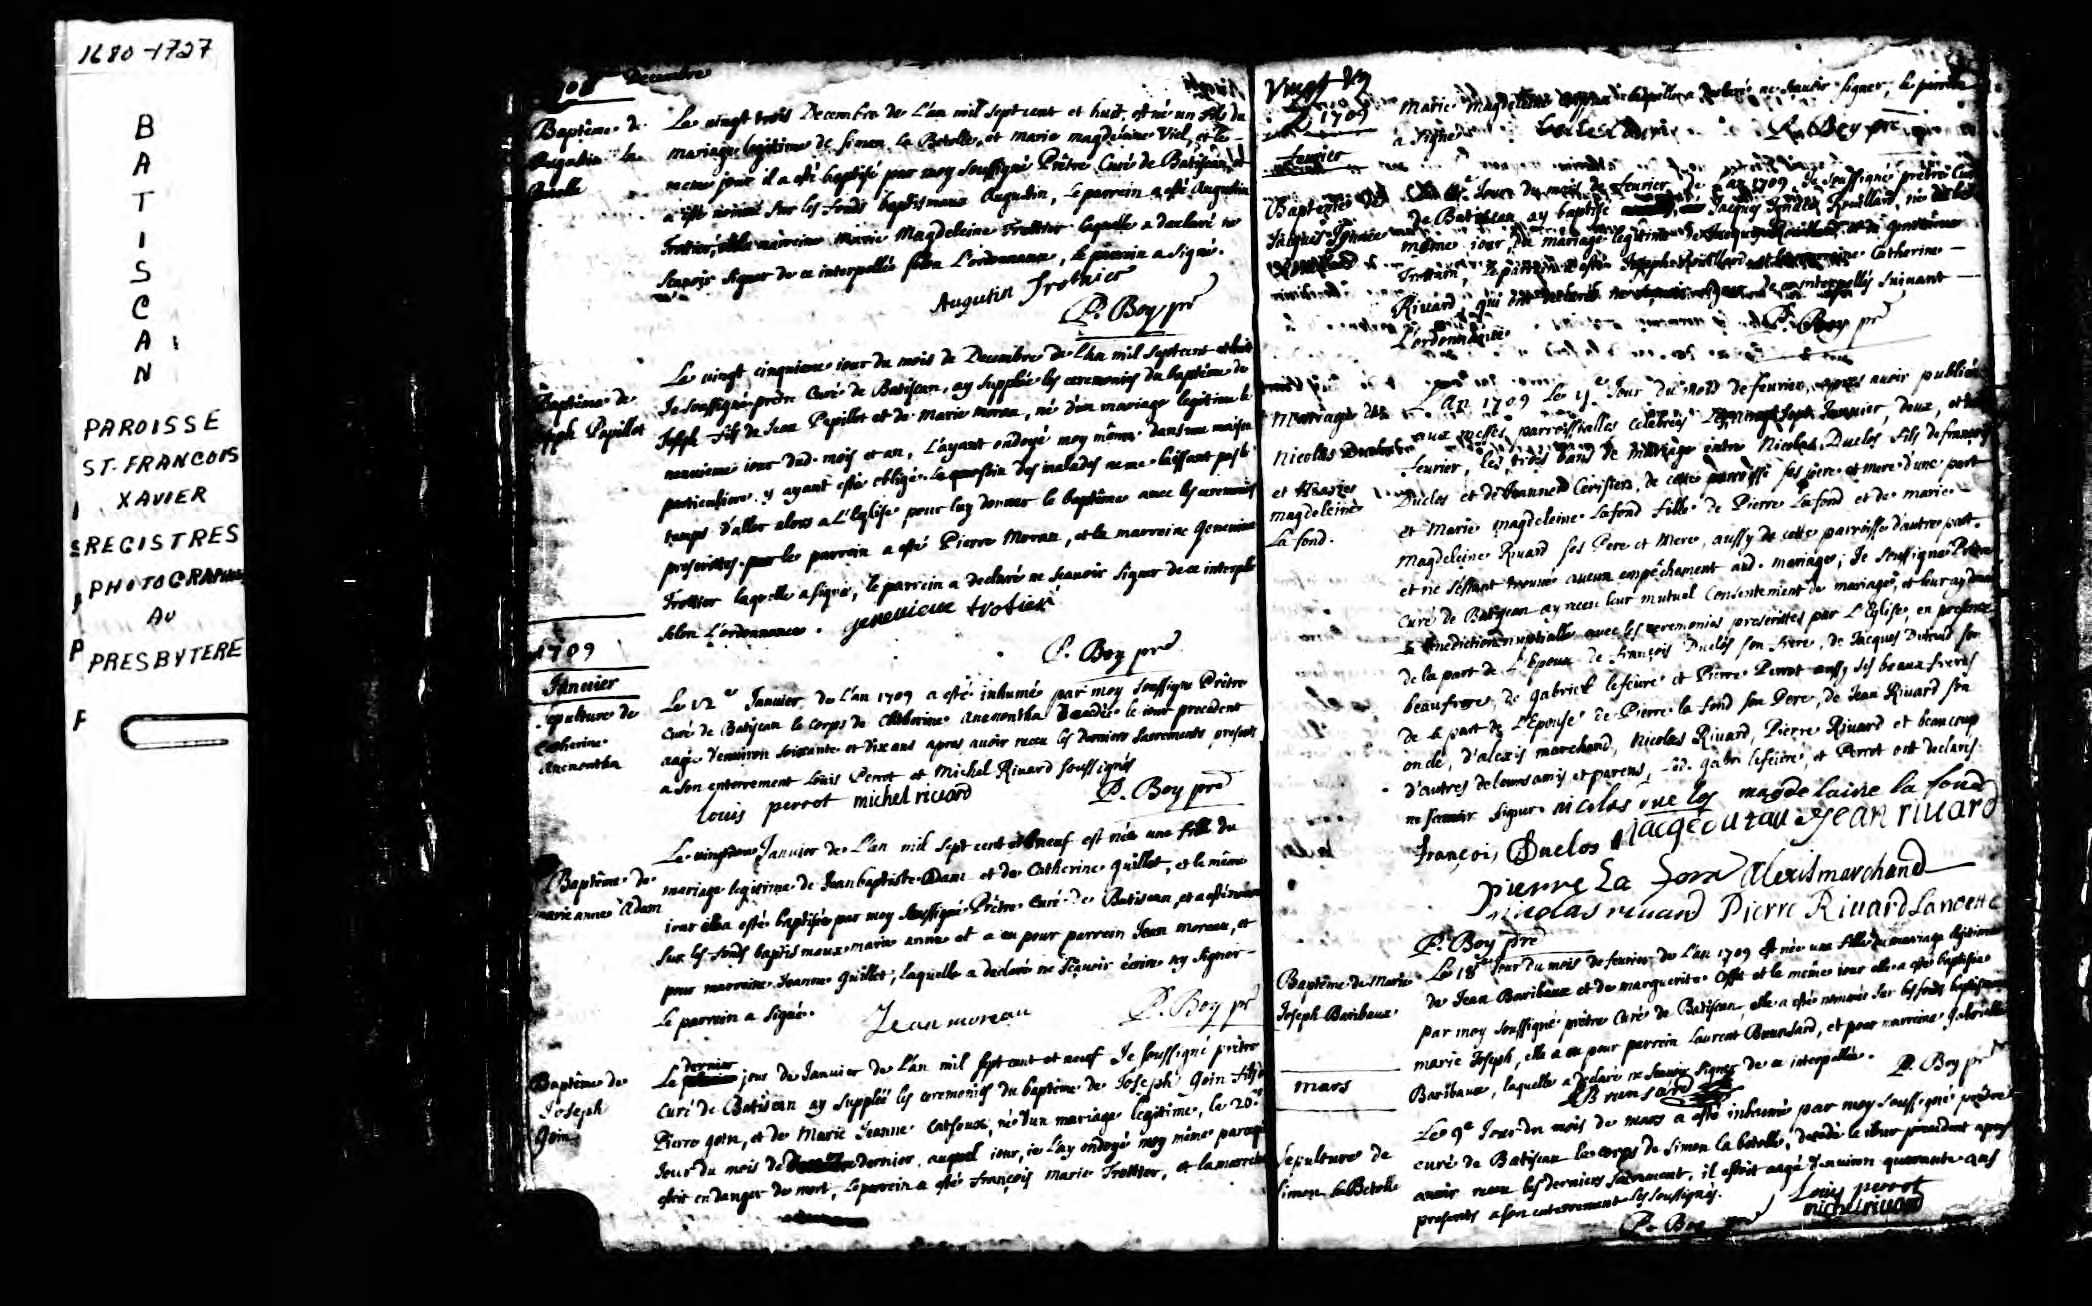 1680-1727
BATISCAN
PAROISSE
ST. FRANCOIS
XAVIER
REGISTRES
PHOTOGRAPHIES
AU
PRESBYTERE
Decembre
Baptême de
Augustin la
Betolle
Le vingt trois Decembre de L'an mil sept cent et huit, est né un fils du
mariage legitime de simon la Betolle, et marie magdeleine Viel, et le
meme jour il a esté baptisé par moy soussigné Prêtre Curé de Batiscan, et
a esté nommé sur les fonds baptismaux Augustin, Le parrein a esté Augustin
Trotier, et la marreine Marie Magdeleine Trottier laquelle a declaré ne
sçavoir signer de ce interpellée selon L'ordonnance, le parrein a signé.
Augustin Trotier
P. Boy pre
Baptême de
Joseph Papillot
Le vingt cinquieme iour du mois de Decembre de L'an mil sept cent et huit
Je soussigné prêtre Curé de Batiscan, ay supplée les ceremonies du baptême de
Joseph fils de Jean Papillot et de Marie Moran, né d'un mariage legitime le
neuvieme iour dud. mois et an, L'ayant ondoyé moy même dans une maison
particuliere y ayant esté obligé, le soin des malades ne me laissant pas le
temps d'aller alors a L'Eglise pour luy donner le baptême avec les ceremonies
prescrittes. le parrein a esté Pierre Moran, et la marreine Genevieve
Trottier laquelle a signé, le parrein a declaré ne sçavoir signer de ce interpellé
selon L'ordonnance. genevieve trotier
P. Boy pre
1709
Janvier
Sepulture de
Catherine
anenontha
Le 12e Janvier de L'an 1709 a esté inhumé par moy soussigné Prêtre
curé de Batiscan le corps de Catherine anenontha decedée le iour precedent
aagée d'environ soixante et dix ans apres avoir receu les derniers sacrements presents
a son enterrement Louis Perrot et Michel Rivard soussignés
louis perrot michel rivard
P. Boy pre
Baptême de
marie anne Adam
Janvier de L'an mil sept cent et neuf est née une fille du
mariage legitime de Jean baptiste Adam et de Catherine Guillet, et le même
iour elle a esté baptisée par moy soussigné Prêtre Curé de Batiscan, et a esté nommée
sur les fonds baptismaux marie anne et a eu pour parrein Jean Moreau, et
pour marreine Jeanne Guillet, laquelle a declaré ne sçavoir écrire ny signer
Le parrein a signé.
Jean moreau
P. Boy pre
Baptême de
Joseph
Goin
Le dernier jour de Janvier de L'an mil sept cent et neuf Je soussigné prêtre
Curé de Batiscan ay supplée les ceremonies du baptême de Joseph Goin fils de
Pierre Goin, et de Marie Jeanne Catsoux, né d'un mariage legitime, le 20e
Jour du mois de dernier, auquel iour, ie l'ay ondoyé moy même parcequ'il
estoit en danger de mort, Le parrein a esté François Marie Trottier, et la marreine
Vingt
1709
Marie Magdeleine ne sçavoir signer, le parrein
a signé
P. Boy pre
fevrier
Baptême de
Jacques Ignace
Jour du mois de fevrier de L'an 1709 Je soussigné prêtre Curé
de Batiscan ay baptisé Jacques Ignace Rouillard, né
même iour, du mariage legitime de Jacques Rouillard et de
Trottain, le parrein a esté Joseph Rouillard et Catherine
Rivard, qui ont declaré ne sçavoir signer de ce interpellés suivant
L'ordonnance
P. Boy pre
Mariage de
Nicolas Duclos
et
magdeleine
La fond.
L'an 1709 Le Jour du mois de fevrier, apres avoir publié
aux messes parroissialles celebrées Janvier, deux, et
fevrier, les trois bans de mariage entre Nicolas Duclos fils de françois
Duclos et de Jeanne Cerisier, de cette parroisse ses pere et mere d'une part
et Marie magdeleine Lafond fille de Pierre Lafond et de marie
Magdeleine Rivard ses Pere et Mere, aussy de cette parroisse d'autre part.
et ne s'estant trouvé aucun empêchement aud. mariage; Je soussigné Prêtre
Curé de Batiscan ay receu leur mutuel consentement de mariage, et leur ay donné
la benediction nuptialle avec les ceremonies prescrittes par L'Eglise, en presence
de la part de L'Epoux de françois Duclos son frere, de Jacques Duteau son
beaufrere, de gabriel lefeuvre et Pierre Perrot aussy ses beaux freres
de la part de L'Epouse de Pierre la fond son Pere, de Jean Rivard son
oncle, d'alexis marchand, Nicolas Rivard, Pierre Rivard et beaucoup
d'autres de leurs amis et parens, led. Gabri. lefeivre, et Perrot ont declarés
ne sçavoir signer. nicolas duclos magdelaine la fond
françois Duclos Jacque dutau Jean rivard
pierre La fond Alexis marchand
nicolas rivard Pierre Rivard Lanoette
P. Boy pre
Baptême de Marie
Joseph Baribeau
Le 18e Jour du mois de fevrier de L'an 1709 est née une fille du mariage legitime
de Jean Baribeau et de marguerite Cosset et le même iour elle a esté baptisée
par moy soussigné prêtre Curé de Batiscan, elle a esté nommée sur les fonds baptismaux
marie Joseph, elle a eu pour parrein Laurent Brunsard, et pour marreine Gabrielle
Baribeau, laquelle a declaré ne sçavoir signer de ce interpellée. P. Boy pre
LBrunsard
mars
Sepulture de
Simon la Betolle
Le 9e Jour du mois de mars a esté inhumé par moy soussigné prêtre
curé de Batiscan le corps de simon la betolle, decedé le iour precedent apres
avoir receu les derniers sacrement, il estoit aagé d'environ quarante ans
presents a son enterrement les soussignés. Louis perrot
P. Boy pre michel rivard